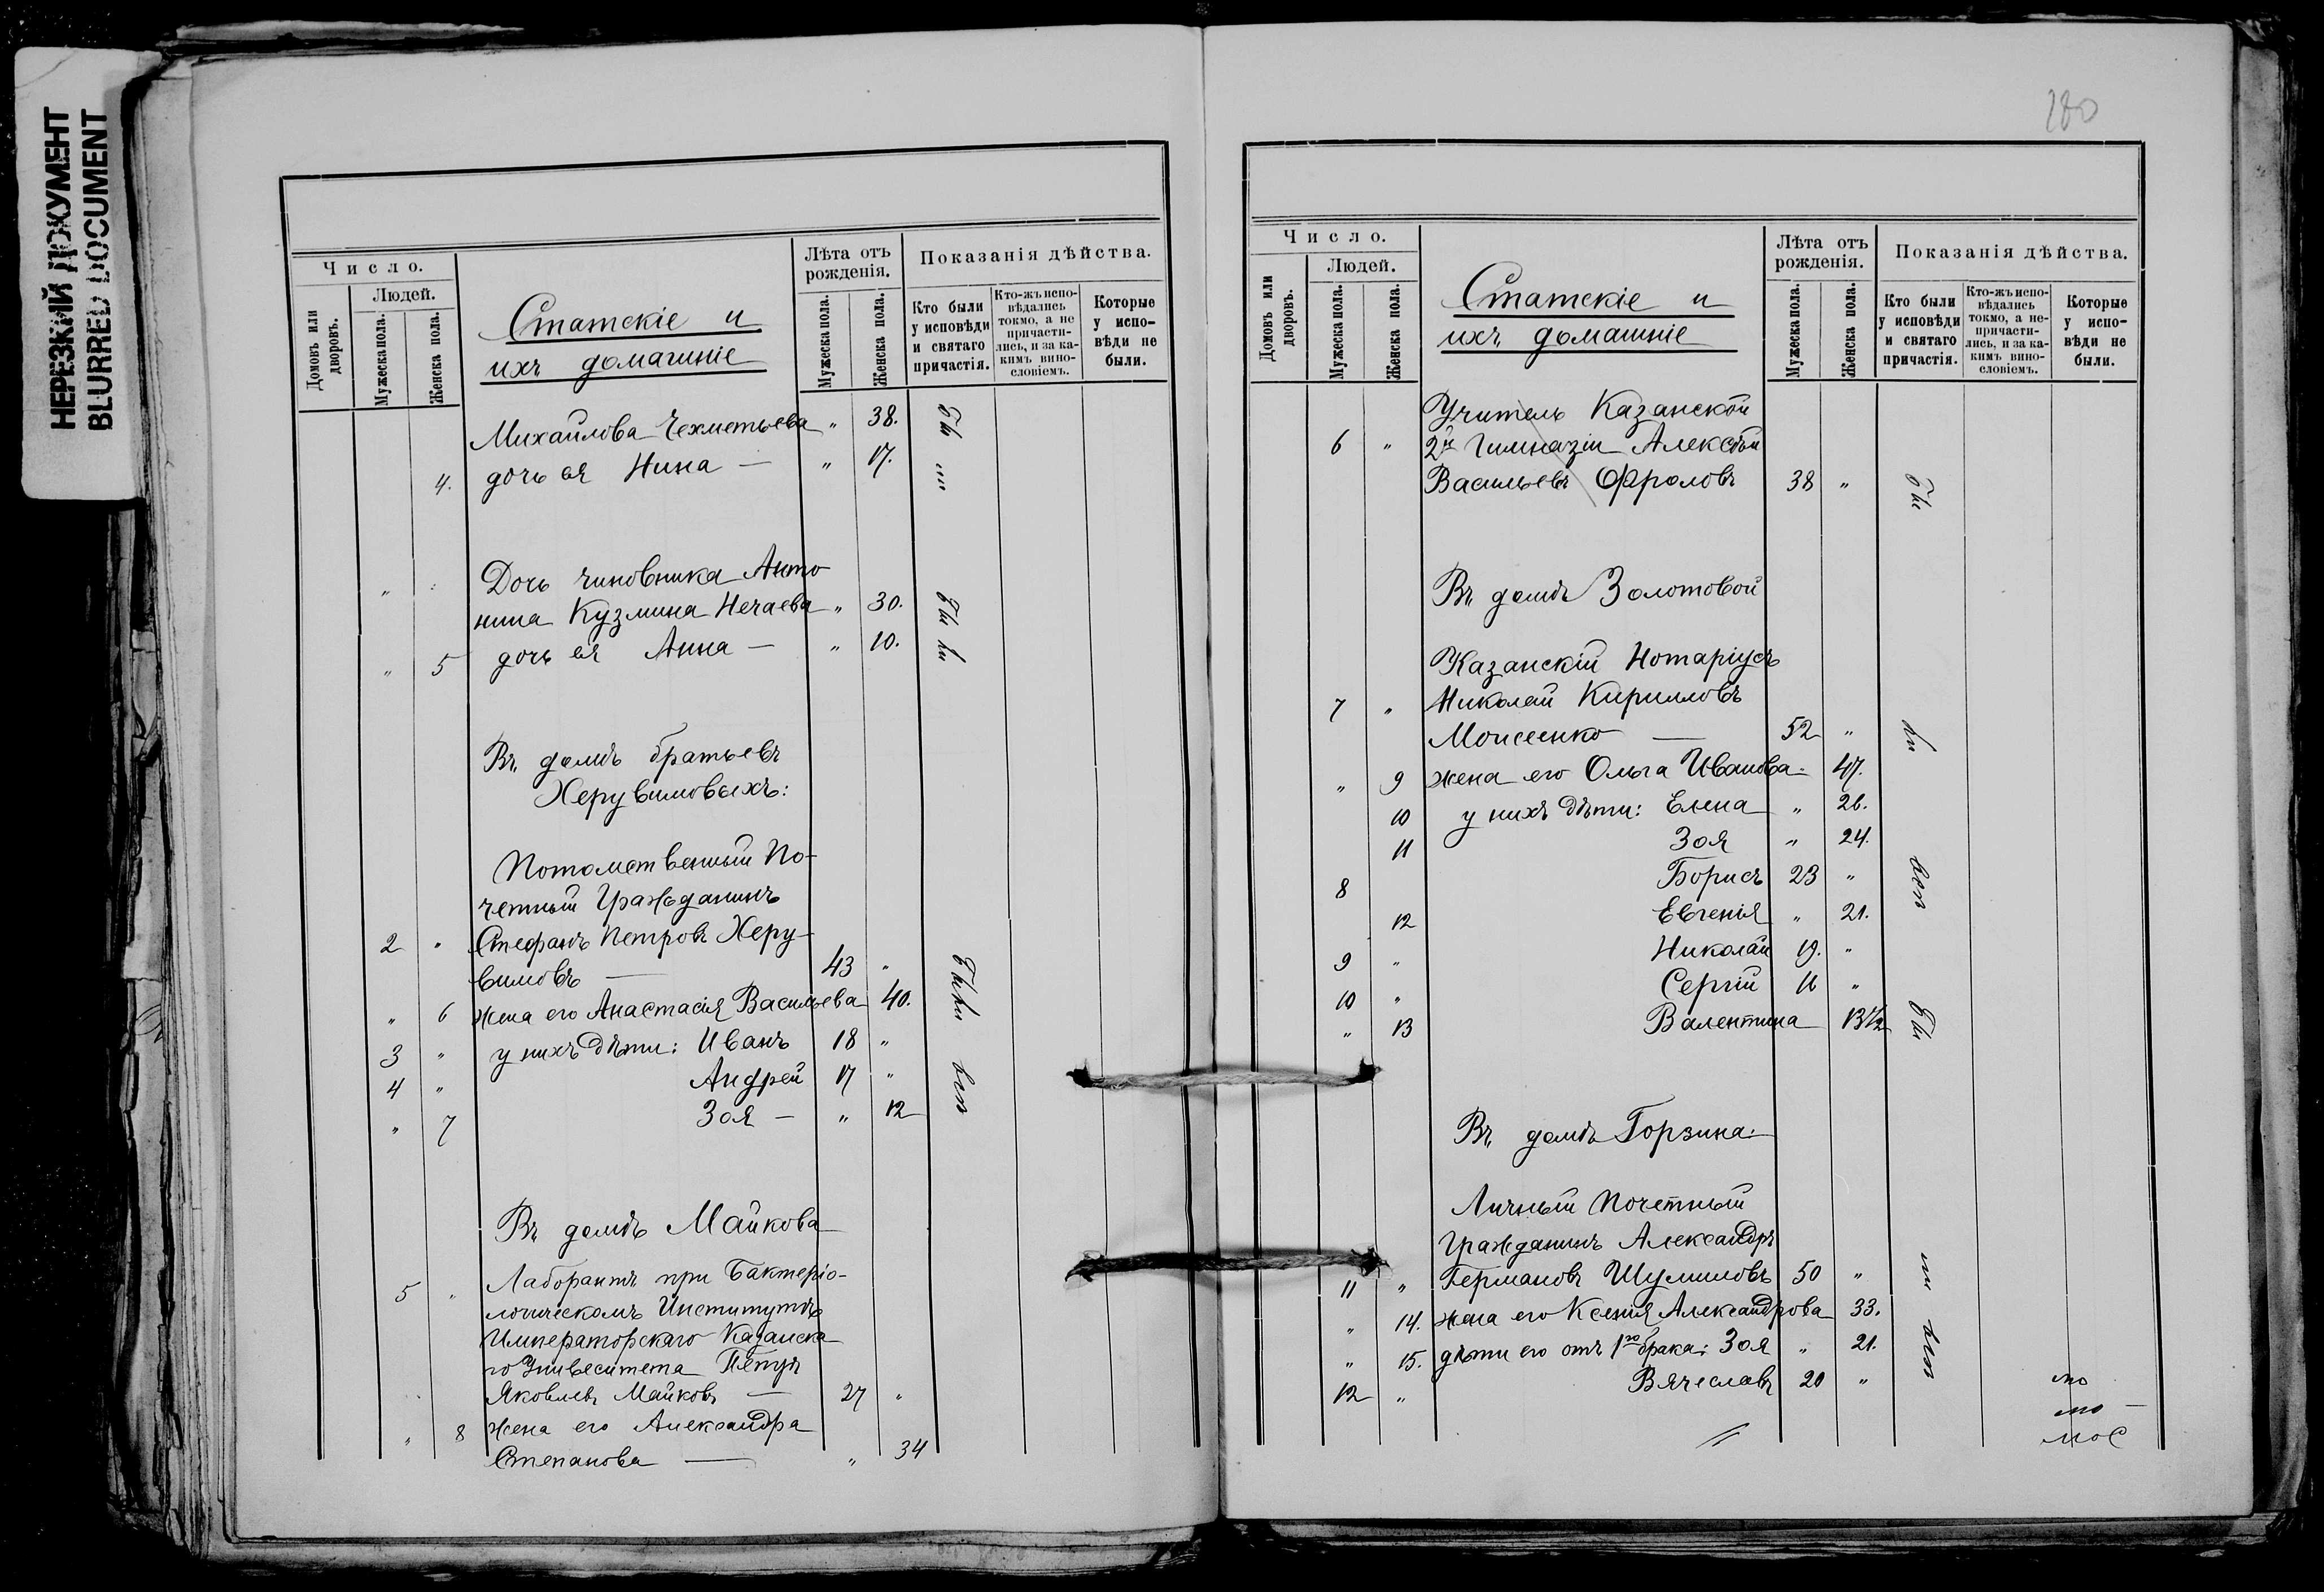 НЕРЕЗКИЙ ДОКУМЕНТ
BLURRED DOCUMENT
Число.
Людей.
Домовъ или дворовъ.
Мужеска пола.
Женска пола.
Статскіе и
ихъ домашніе
Лѣта отъ рожденія.
Мужеска пола.
Женска пола.
Показанія дѣйства.
Кто были у исповѣди и святаго причастія.
Кто-жъ исповѣдались токмо, а не причастились, и за какимъ винословіемъ.
Которые у исповѣди не были.
Михайлова Чехметьева " 38.
4. дочь ея Нина — " 17.
" Дочь чиновника Анто
нина Кузмина Нечаева " 30.
" 5 дочь ея Анна — " 10.
Въ домѣ братьевъ
Херувимовыхъ:
Потомственный По-
четный Гражданинъ
2 " Стефанъ Петровъ Херу-
вимовъ — 43 "
" 6 жена его Анастасія Васильева 40.
3 " у нихъ дѣти: Иванъ 18 "
4 " Андрей 17 "
" 7 Зоя — " 12
Въ домѣ Майкова
5 " Лаборантъ при Бактеріо-
логическомъ Институтѣ
Императорскаго Казанска
го Унивеситета Петръ
Яковлевъ Майковъ — 27 "
" 8 жена его Александра
Степанова — " 34
были
180
Число.
Людей.
Домовъ или дворовъ.
Мужеска пола.
Женска пола.
Статскіе и
ихъ домашніе
Лѣта отъ рожденія.
Мужеска пола.
Женска пола.
Показанія дѣйства.
Кто были у исповѣди и святаго причастія.
Кто-жъ исповѣдались токмо, а не-причастились, и за какимъ винословіемъ.
Которые у исповѣди не были.
Учитель Казанской
6 " 2й Гимназіи Алексѣй
Васильевъ Фроловъ 38 "
Въ домѣ Золотовой
Казанскій Нотаріусъ
7 " Николай Кирилловъ
Моисеенко — 52 "
" 9 жена его Ольга Иванова 47.
10 у нихъ дѣти: Елена " 26.
11 Зоя " 24.
8 Борисъ 23 "
12 Евгенія " 21.
9 " Николай 19. "
10 " Сергій 16 "
" 13 Валентина 13½
Въ домѣ Горзина:
Личный Почетный
Гражданинъ Александръ
11 " Германовъ Шумиловъ 50 "
" 14. жена его Ксенія Александрова 33.
" 15. дѣти его отъ 1го брака: Зоя " 21.
12 " Вячеславъ 20 "